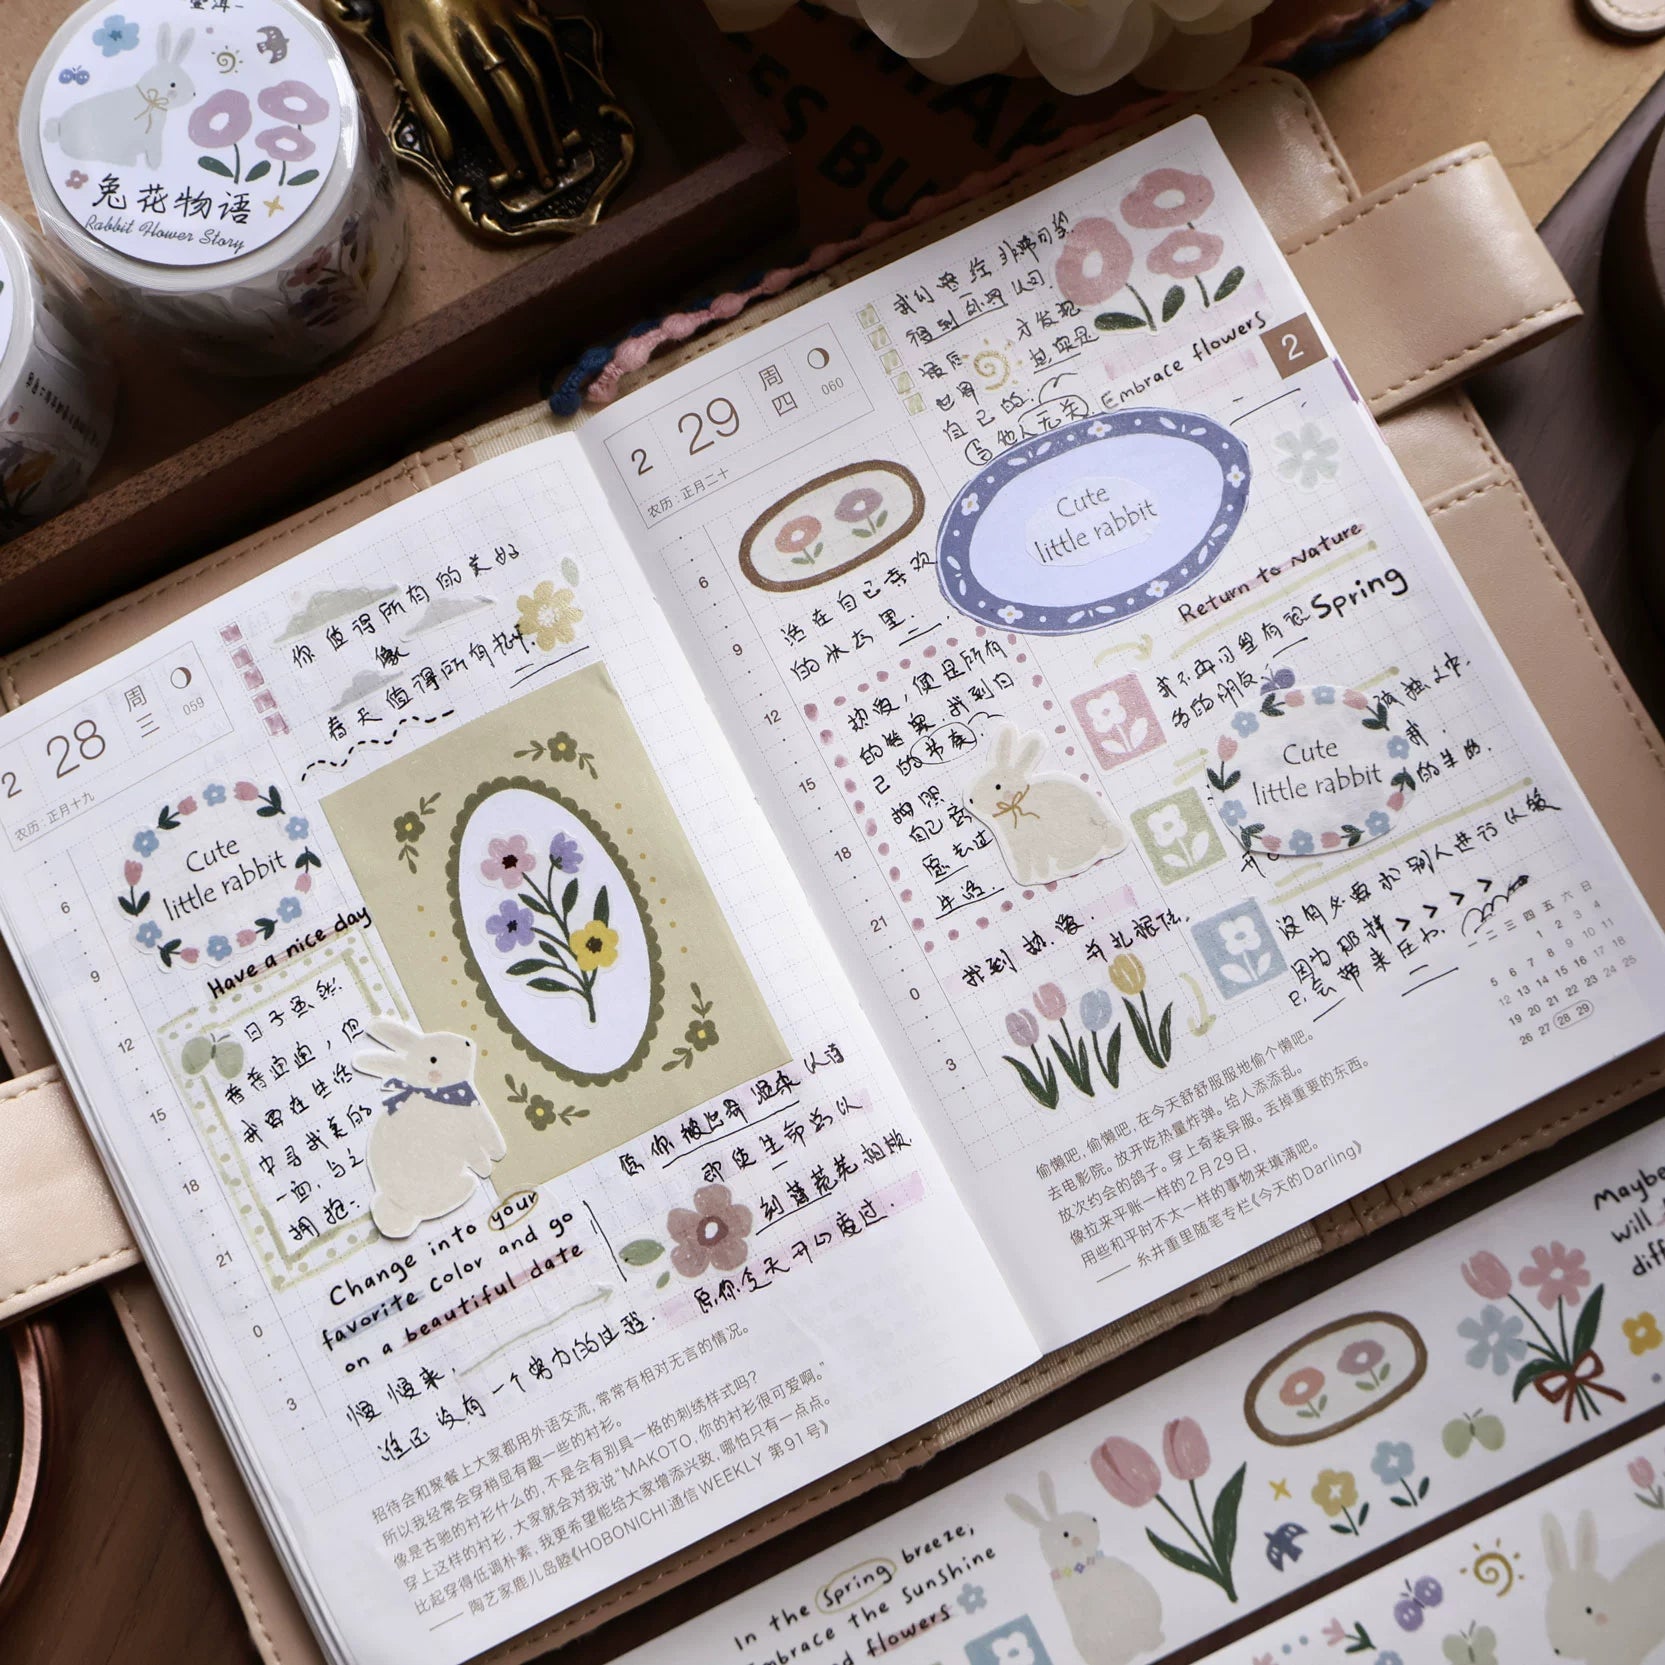 兔花物语
Rabbit Flower Story
2 28 周三 059
农历:正月十九
你值得所有的美好
像
春天值得所有
Cute
little rabbit
Have a nice day
日子虽然
普普通通,但
我要在生活
中寻找美的
一面,与之
拥抱;
6
9
12
15
18
21
0
3
Change into your
favorite color and go
on a beautiful date
愿你被世界温柔以待
即使生命总以
刻薄荒芜相欺
愿你今天开心度过.
慢慢来,
谁还没有一个努力的过程.
招待会和聚餐上大家都用外语交流,常常有相对无言的情况。
所以我经常会穿稍显有趣一些的衬衫。
像是古驰的衬衫什么的,不是会有别具一格的刺绣样式吗?
穿上这样的衬衫,大家就会对我说“MAKOTO,你的衬衫很可爱啊。”
比起穿得低调朴素,我更希望能给大家增添兴致,哪怕只有一点点。
——陶艺家鹿儿岛睦《HOBONICHI通信WEEKLY 第91号》
2 29 周四 060
农历:正月二十
2
我们曾经非常
得到外界认可.
最后才发现
世界其实是
自己的.
与他人无关.
Embrace flowers
Cute
little rabbit
Return to Nature
Spring
活在自己喜欢
的状态里.
热爱,便是所有
的答案.找到自
己的节奏.
按照
自己
愿去过
生活.
找到热爱.
并扎根住.
6
9
12
15
18
21
0
3
我不再习惯有很
多的朋友.
Cute
little rabbit
孤独
我.
的生活.
没有必要和别人进行比较
因为那样>>>>
只会带来压力.
一 二 三 四 五 六 日
1 2 3 4
5 6 7 8 9 10 11
12 13 14 15 16 17 18
19 20 21 22 23 24 25
26 27 28 29
偷懒吧,偷懒吧,在今天舒舒服服地偷个懒吧。
去电影院。放开吃热量炸弹。给人添添乱。
放次约会的鸽子。穿上奇装异服。丢掉重要的东西。
像拉来平账一样的2月29日,
用些和平时不太一样的事物来填满吧。
——糸井重里随笔专栏《今天的Darling》
Maybe
will
In the Spring breeze,
Embrace the sunshine
flowers